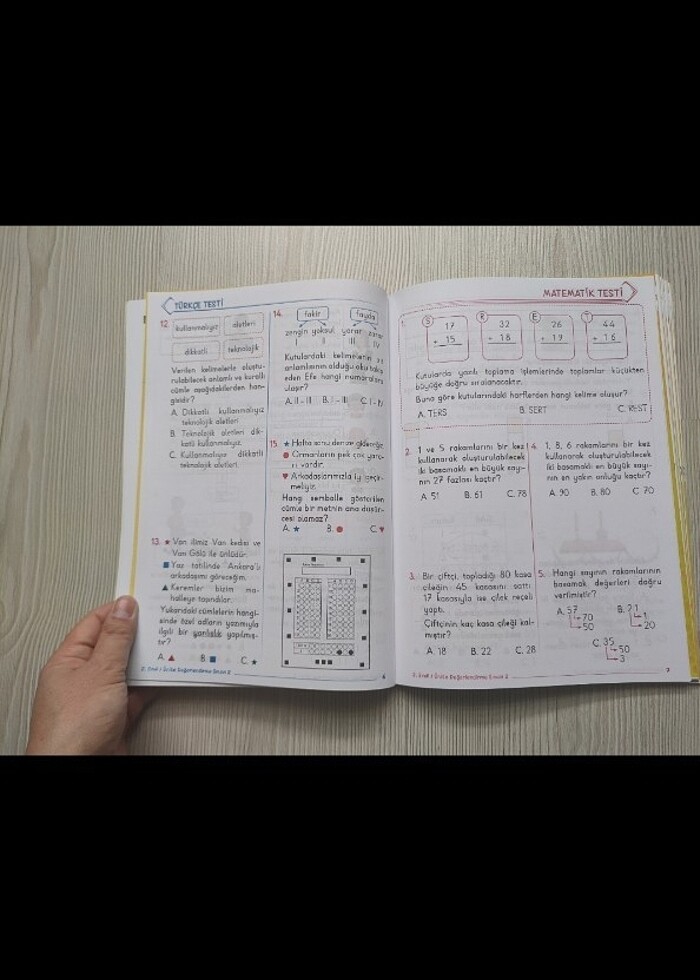 TÜRKÇE TESTİ
12.
kullanmalıyız
aletleri
dikkatli
teknolojik
Verilen kelimelerle oluştu-
rulabilecek anlamlı ve kurallı
cümle aşağıdakilerden han-
gisidir?
A. Dikkatli kullanmalıyız
teknolojik aletleri.
B. Teknolojik aletleri dik-
katli kullanmalıyız.
C. Kullanmalıyız dikkatli
teknolojik aletleri.
13. ★ Van ilimiz Van kedisi ve
Van Gölü ile ünlüdür.
■ Yaz tatilinde Ankara'lı
arkadaşımı göreceğim.
▲ Keremler bizim ma-
halleye taşındılar.
Yukarıdaki cümlelerin hangi-
sinde özel adların yazımıyla
ilgili bir yanlışlık yapılmış-
tır?
A. ▲ B. ■ C. ★
14.
fakir
fayda
zengin yoksul yarar zarar
II III IV
Kutulardaki kelimelerin
anlamlısının olduğu
eden Efe hangi numaralara
ulaşır?
A. II - III B. I - III C. I - IV
15. ★ Hafta sonu denize gideceğiz.
● Ormanların pek çok yara-
rı vardır.
♥ Arkadaşlarımızla iyi geçin-
meliyiz.
Hangi sembolle gösterilen
cümle bir metnin ana düşün-
cesi olamaz?
A. ★ B. ● C. ♥
6
MATEMATİK TESTİ
1.
S R E T
17 32 26 44
+ 15 + 18 + 19 + 16
Kutularda yazılı toplama işlemlerinde toplamlar küçükten
büyüğe doğru sıralanacaktır.
Buna göre kutularındaki harflerden hangi kelime oluşur?
A. TERS B. SERT C. REST
2. 1 ve 5 rakamlarını bir kez
kullanarak oluşturulabilecek
iki basamaklı en büyük sayı-
nın 27 fazlası kaçtır?
A. 51 B. 61 C. 78
3. Bir çiftçi, topladığı 80 kasa
çileğin 45 kasasını sattı.
17 kasasıyla ise çilek reçeli
yaptı.
Çiftçinin kaç kasa çileği kal-
mıştır?
A. 18 B. 22 C. 28
4. 1, 8, 6 rakamlarını bir kez
kullanarak oluşturulabilecek
iki basamaklı en büyük sayı-
nın en yakın onluğu kaçtır?
A. 90 B. 80 C. 70
5. Hangi sayının rakamlarının
basamak değerleri doğru
verilmiştir?
A. 57
70
50
B. 21
1
20
C. 35
50
3
7